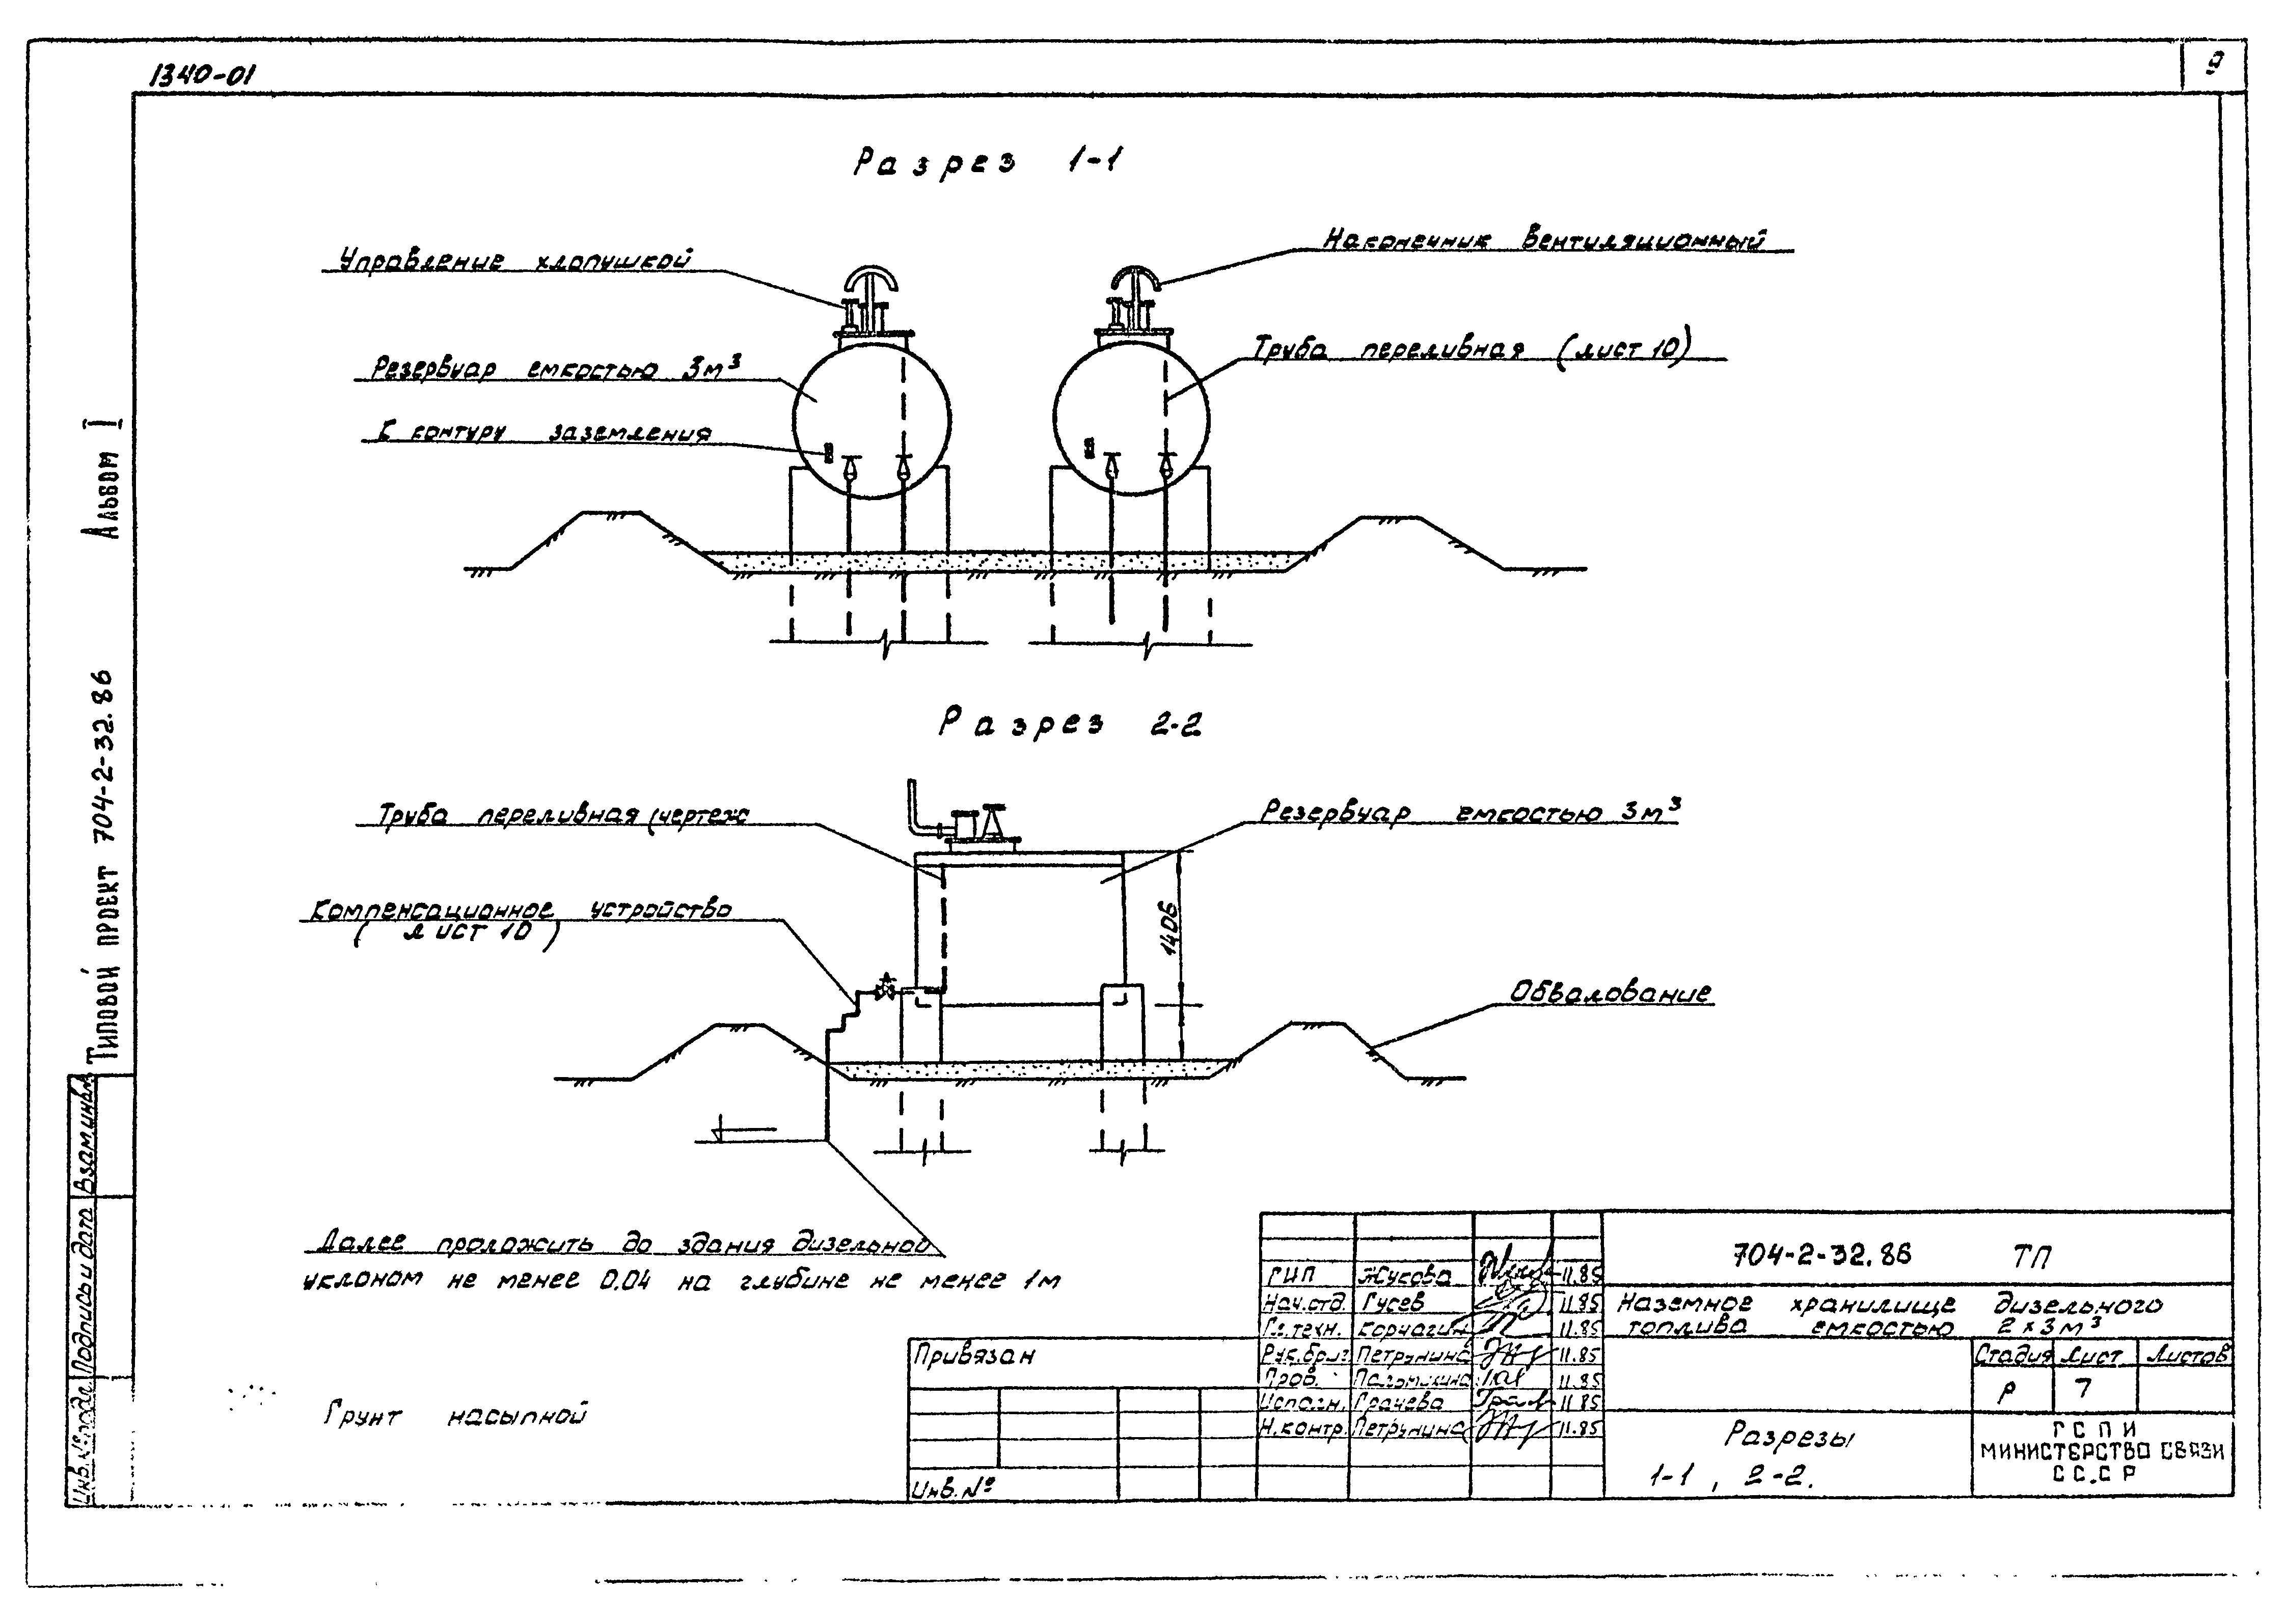 1340-01
9
Разрез 1-1
Управление хлопушкой
Наконечник вентиляционный
Резервуар емкостью 3м³
Труба переливная (лист 10)
К контуру заземления
Альбом I
Типовой проект 704-2-32.86
Разрез 2-2
Труба переливная (чертеж
Резервуар емкостью 3м³
Компенсационное устройство
(лист 10)
1406
Обвалование
Далее проложить до здания дизельной
уклоном не менее 0.04 на глубине не менее 1м
Грунт насыпной
Взам.инв.
Подпись и дата
Инв.№ подл.
Привязан
Инв.№
ГИП Жукова 11.85
Нач.отд. Гусев 11.85
Гл.техн. Корчагин 11.85
Рук.бриг. Петрунина 11.85
Пров. 11.85
Исполн. Грачева 11.85
Н.контр. Петрунина 11.85
704-2-32.86 ТП
Наземное хранилище дизельного
топлива емкостью 2×3м³
Стадия Лист Листов
Р 7
Разрезы
1-1, 2-2.
ГСПИ
МИНИСТЕРСТВО СВЯЗИ
СССР